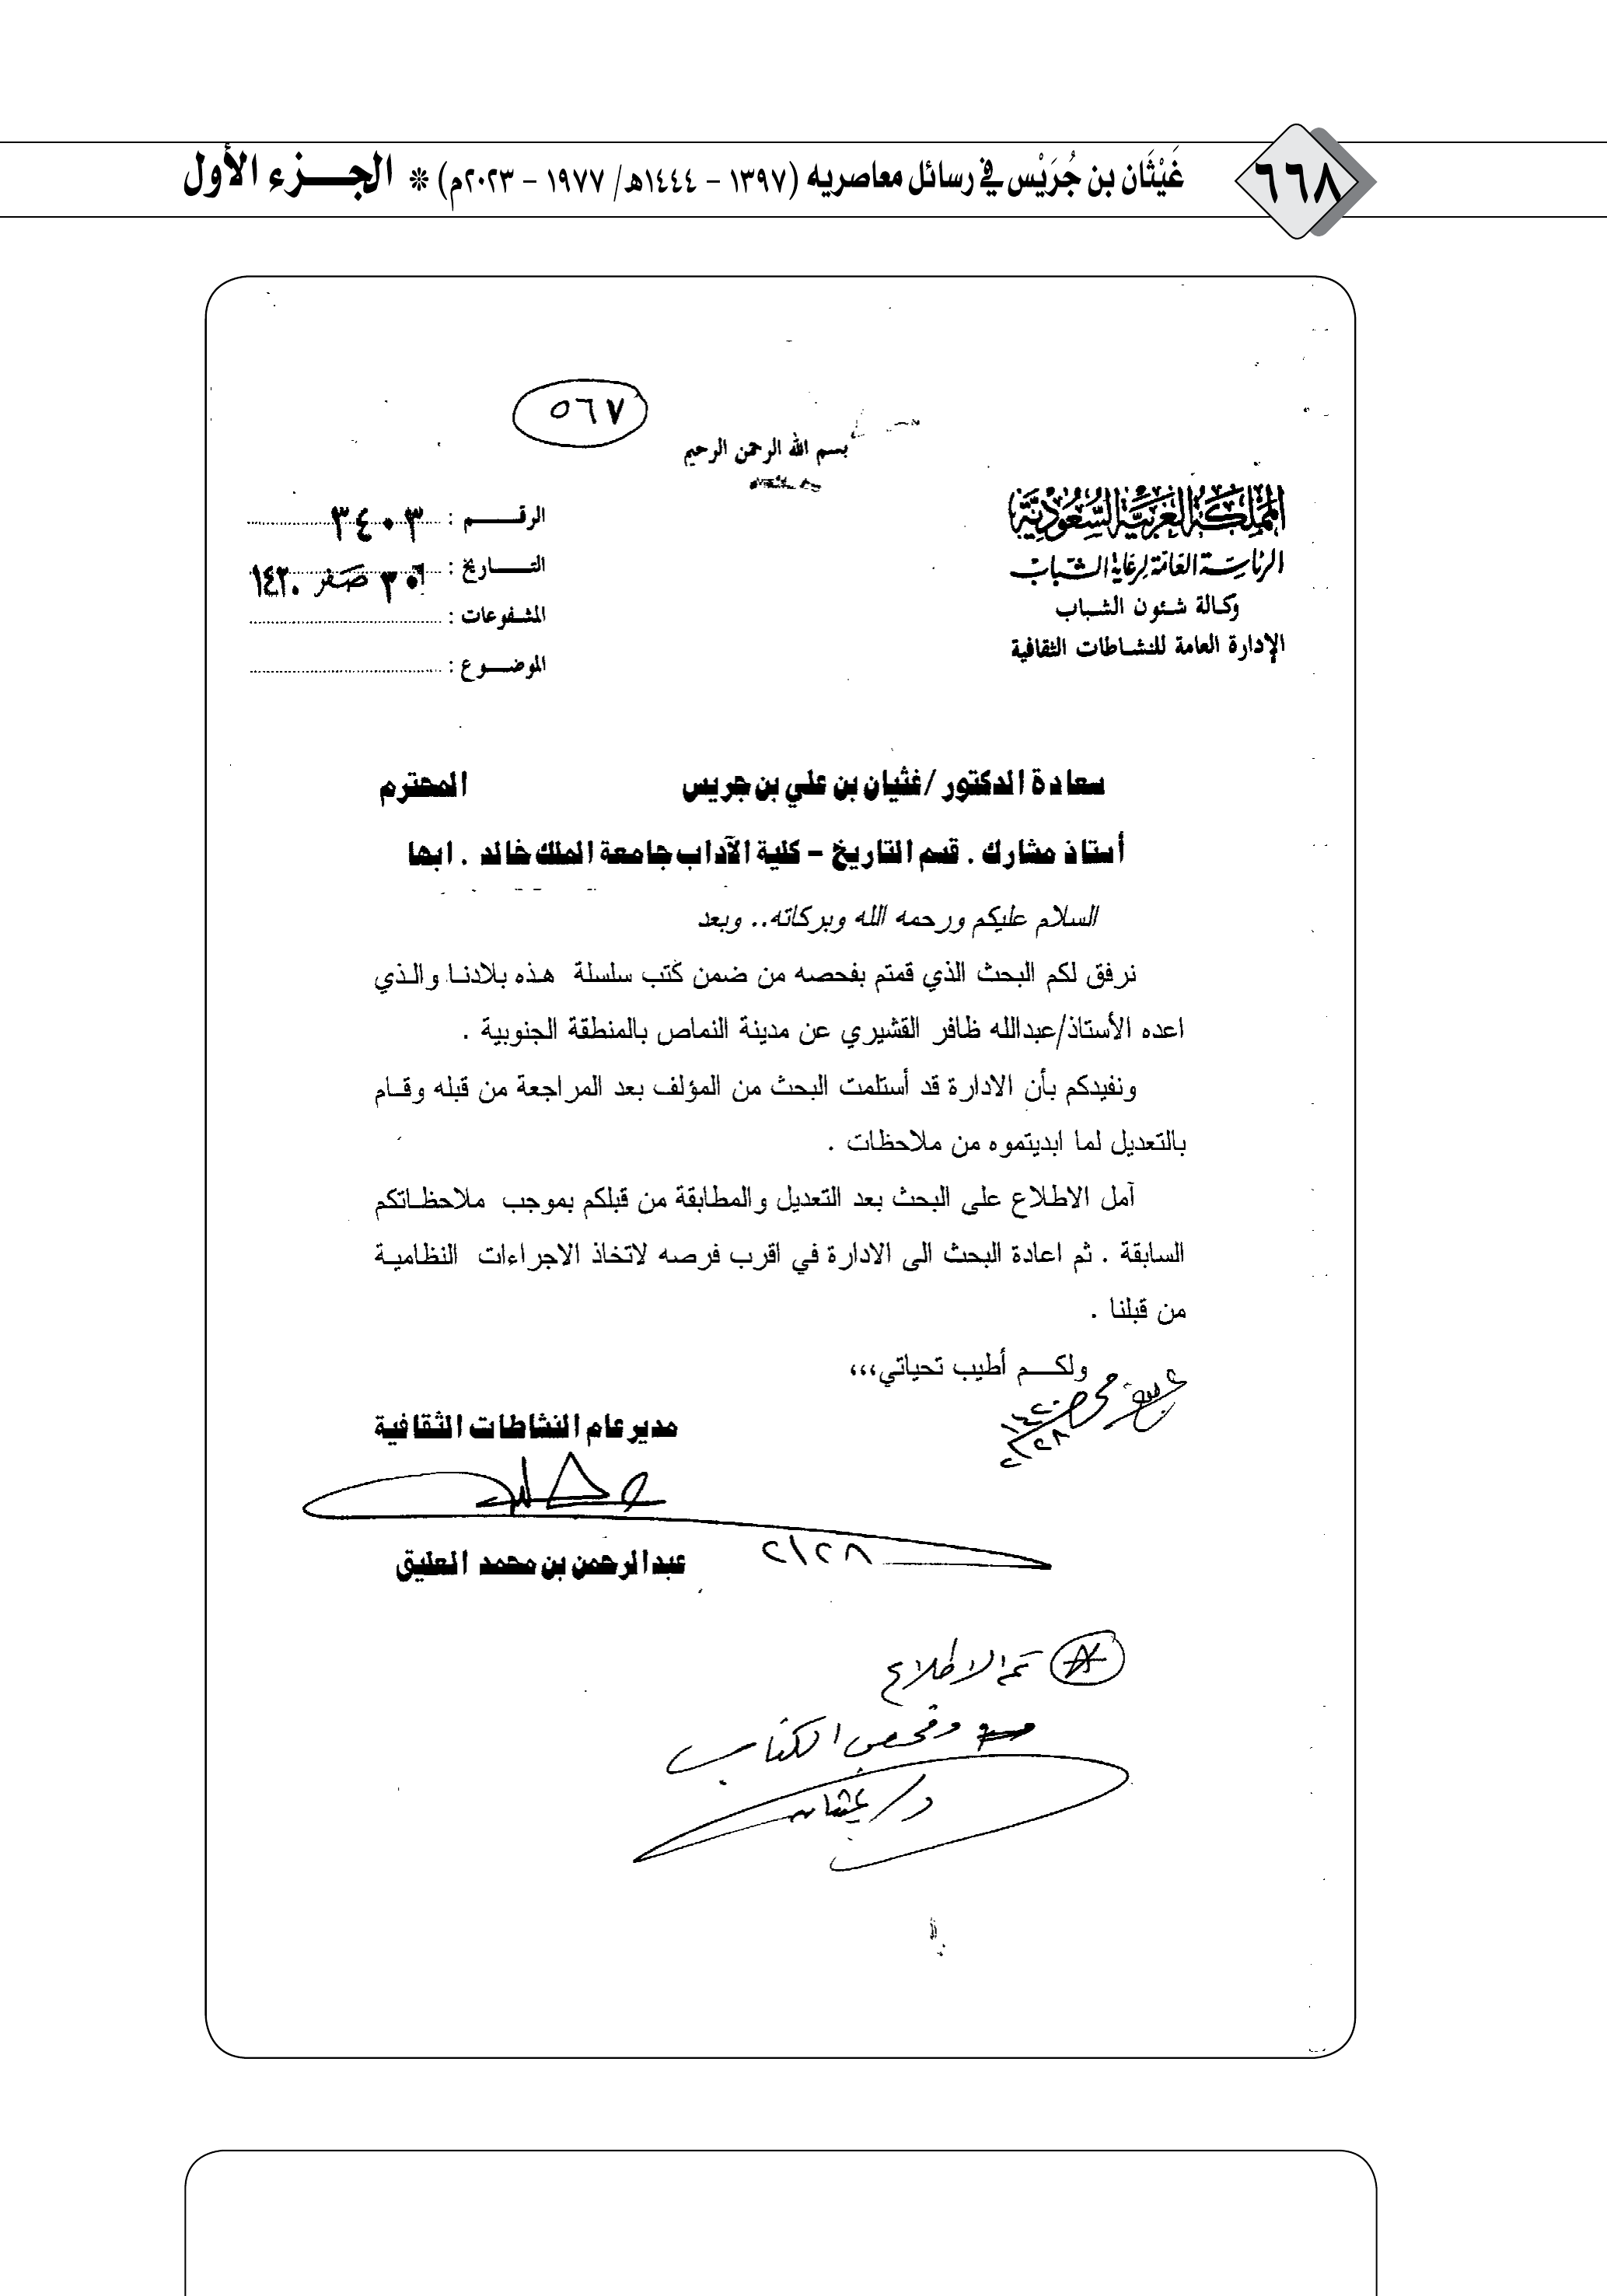 ٦٦٨
غَيْثَان بن جُرَيْس في رسائل معاصريه (١٣٩٧ – ١٤٤٤هـ/ ١٩٧٧ – ٢٠٢٣م) * الجـــزء الأول
٥٦٧
بسم الله الرحمن الرحيم
المملكة العربية السعودية
الرئاسة العامة لرعاية الشباب
وكالة شئون الشباب
الإدارة العامة للنشاطات الثقافية
الرقـــــم : ٣٤٠٣
التـــــاريخ : ٣٠ صفر ١٤٢٠
المشفوعات :
الموضـــوع :
سعادة الدكتور /غثيان بن علي بن جريس المحترم
أستاذ مشارك . قسم التاريخ – كلية الآداب جامعة الملك خالد . ابها
السلام عليكم ورحمه الله وبركاته.. وبعد
نرفق لكم البحث الذي قمتم بفحصه من ضمن كتب سلسلة هذه بلادنا والذي
اعده الأستاذ/عبدالله ظافر القشيري عن مدينة النماص بالمنطقة الجنوبية .
ونفيدكم بأن الادارة قد أستلمت البحث من المؤلف بعد المراجعة من قبله وقام
بالتعديل لما ابديتموه من ملاحظات .
آمل الاطلاع على البحث بعد التعديل والمطابقة من قبلكم بموجب ملاحظاتكم
السابقة . ثم اعادة البحث الى الادارة في اقرب فرصه لاتخاذ الاجراءات النظامية
من قبلنا .
ولكـــم أطيب تحياتي،،،
١٤٢٠
٢/٢٨
مدير عام النشاطات الثقافية
٢/٢٨
عبدالرحمن بن محمد العليق
تم الاطلاع
وفحص الكتاب
د/ غيثان